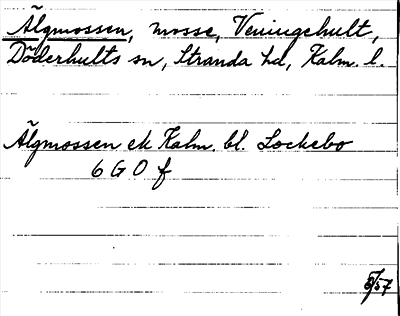 Älgmossen, mosse, Veningehult,
Döderhults sn, Stranda hd, Kalm. l.
Älgmossen ek Kalm. bl. Lockebo
6 G 0 f